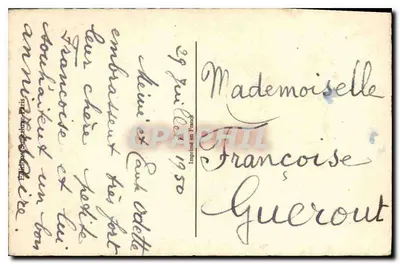 29 Juillet 1950
Mémé et Tante Odette
embrassent très fort
leur chère petite
Françoise et lui
souhaitent un bon
anniversaire.
Imprimé en France
Mademoiselle
Françoise
Guerout
CPAPHIL